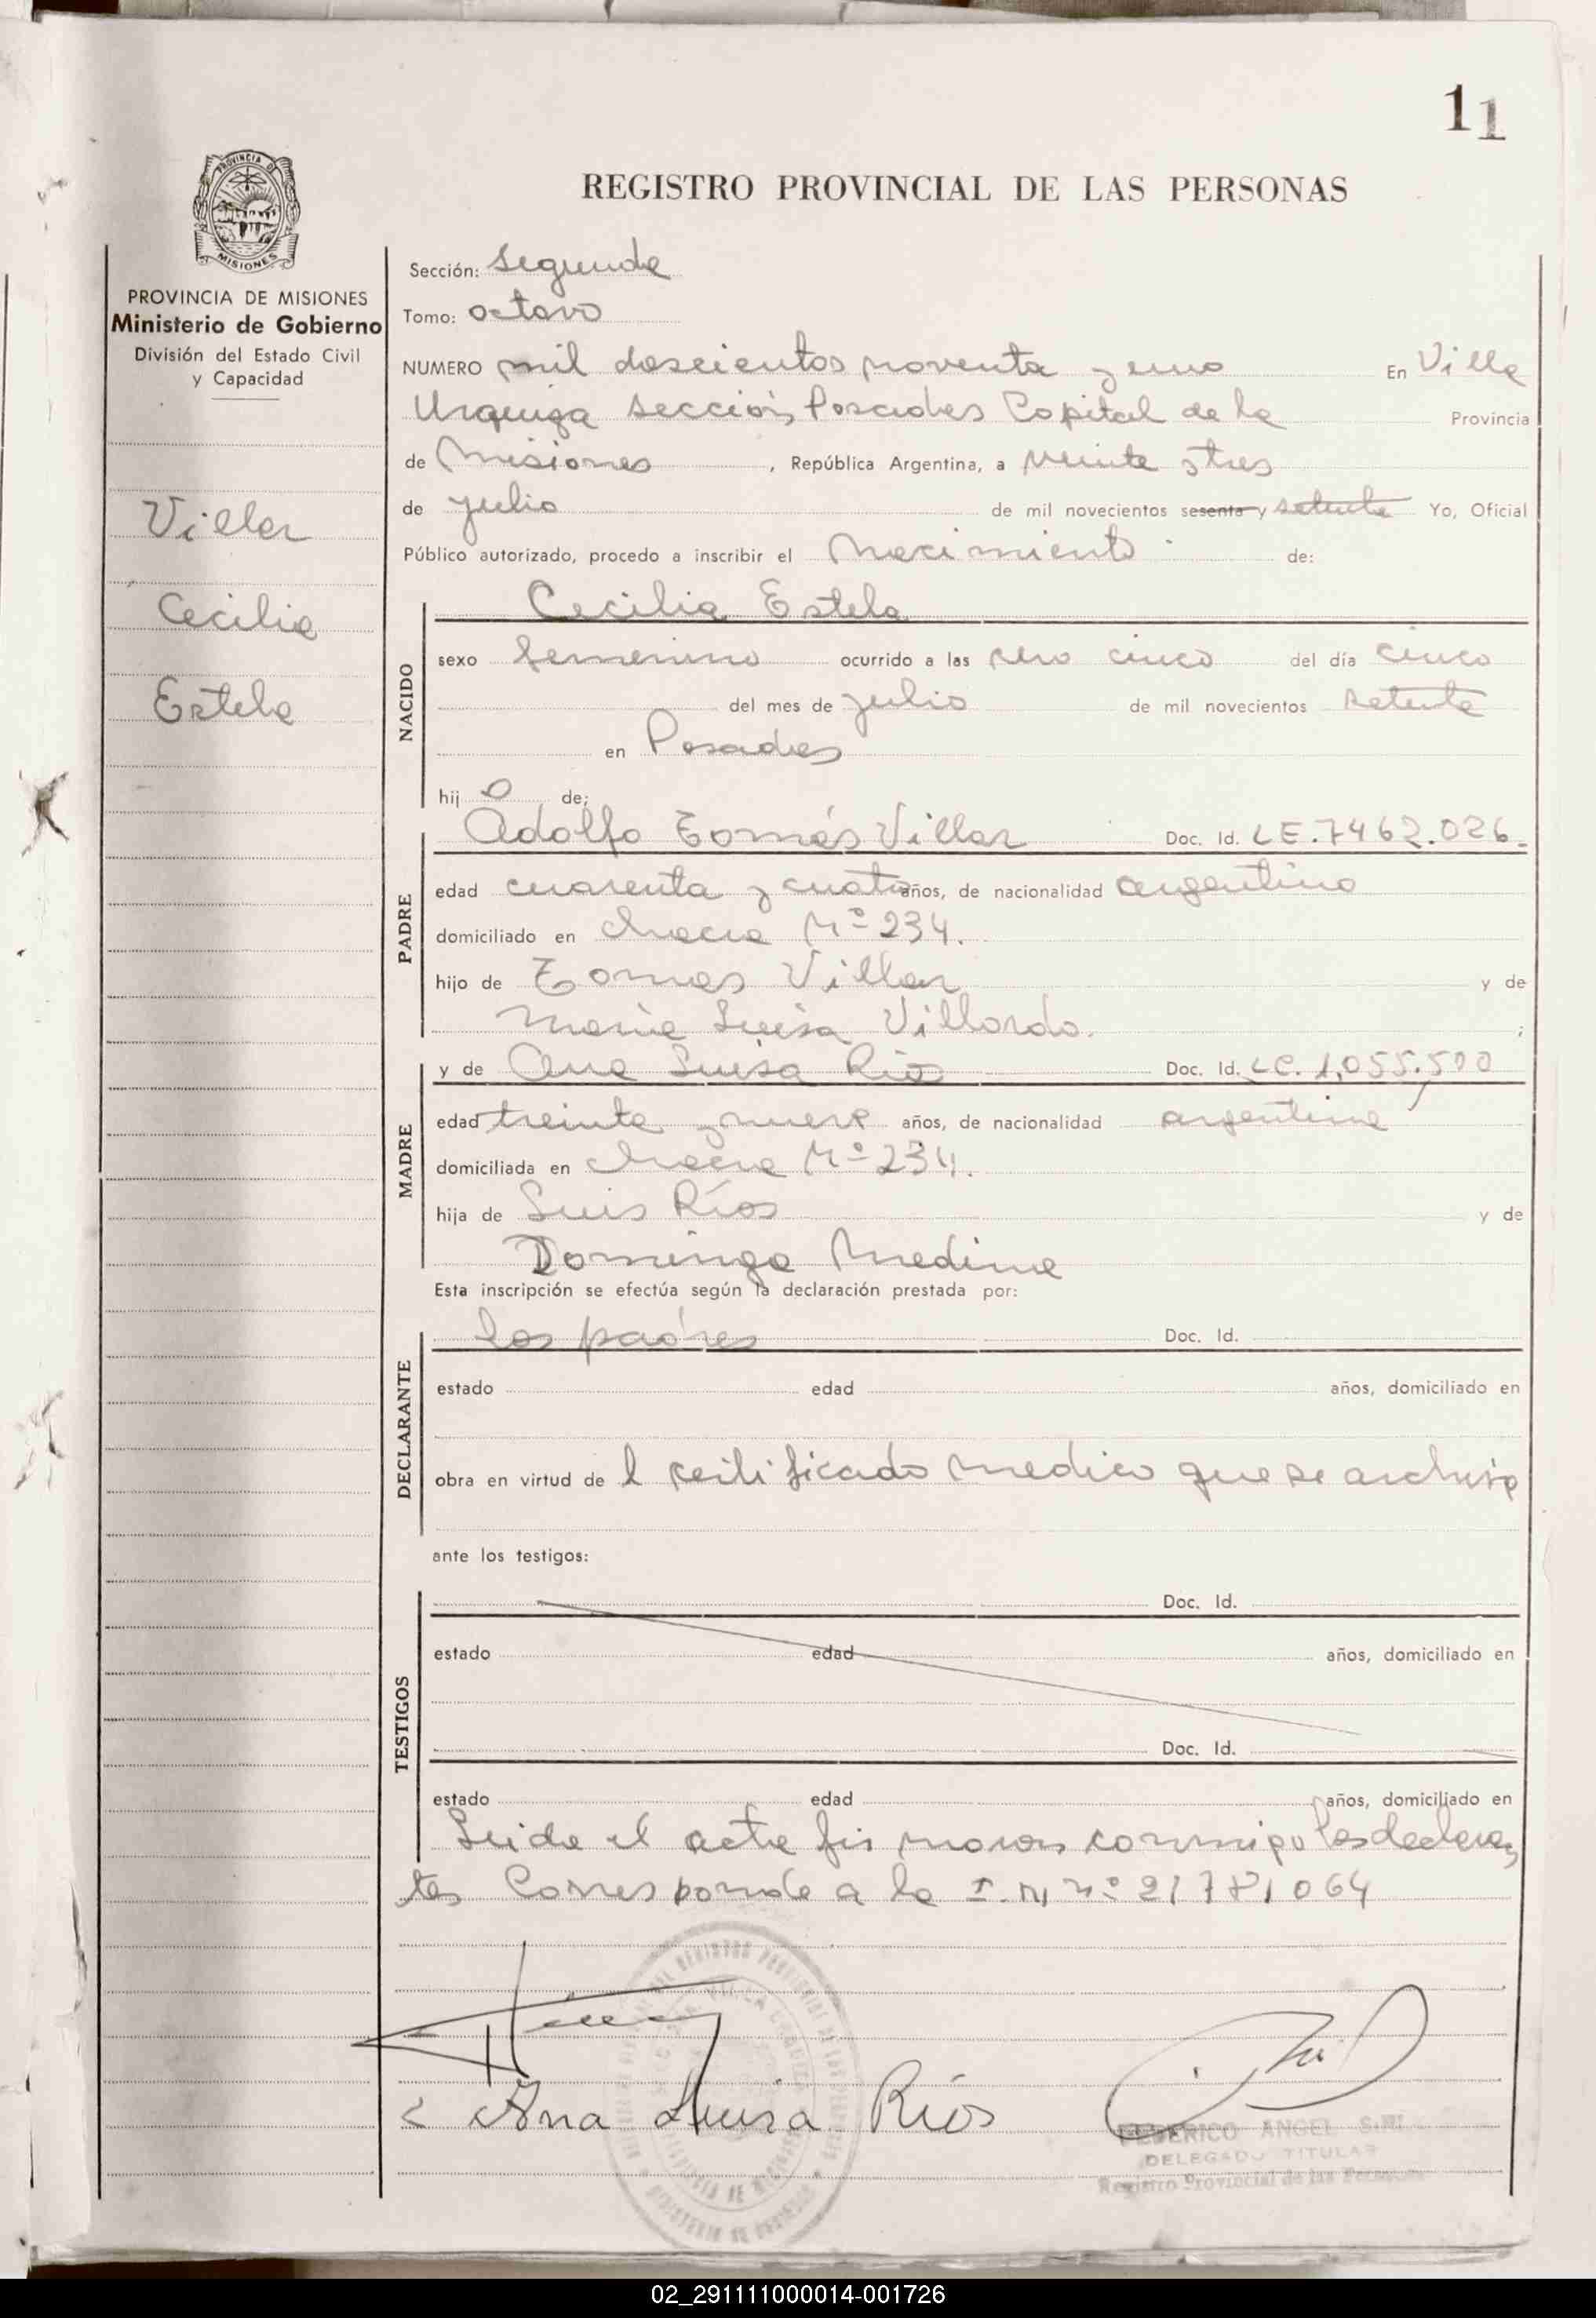 11
REGISTRO PROVINCIAL DE LAS PERSONAS
PROVINCIA DE MISIONES
MISIONES
PROVINCIA DE MISIONES
Ministerio de Gobierno
División del Estado Civil
y Capacidad
Villar
Cecilia
Estela
Sección: Segunda
Tomo: octavo
NUMERO mil doscientos noventa y uno En Villa
Urquiza Sección Posadas Capital de la Provincia
de Misiones, República Argentina, a veinte y tres
de julio de mil novecientos sesenta y setenta Yo, Oficial
Público autorizado, procedo a inscribir el Nacimiento de:
NACIDO
Cecilia Estela
sexo femenino ocurrido a las cero cinco del día cinco
del mes de julio de mil novecientos setenta
en Posadas
hij a de;
PADRE
Adolfo Tomás Villar Doc. Id. LE.7462.026.
edad cuarenta y cuatro años, de nacionalidad argentino
domiciliado en chacra Nº 234.
hijo de Tomas Villar y de
Maria Luisa Villordo. ;
MADRE
y de Ana Luisa Ríos Doc. Id. LC. 1,055.500
edad treinta y nueve años, de nacionalidad argentina
domiciliada en chacra Nº 234.
hija de Luis Ríos y de
Dominga Medina
Esta inscripción se efectúa según la declaración prestada por:
DECLARANTE
los padres Doc. Id.
estado edad años, domiciliado en
obra en virtud de l certificado medico que se archiva
ante los testigos:
TESTIGOS
Doc. Id.
estado edad años, domiciliado en
Doc. Id.
estado edad años, domiciliado en
Leida el acta firmaron conmigo los declaran
tes Corresponde a la I.N. nº 21781064
Ana Luisa Ríos
FEDERICO ANGEL
DELEGADO TITULAR
Registro Provincial de las Personas
02_291111000014-001726